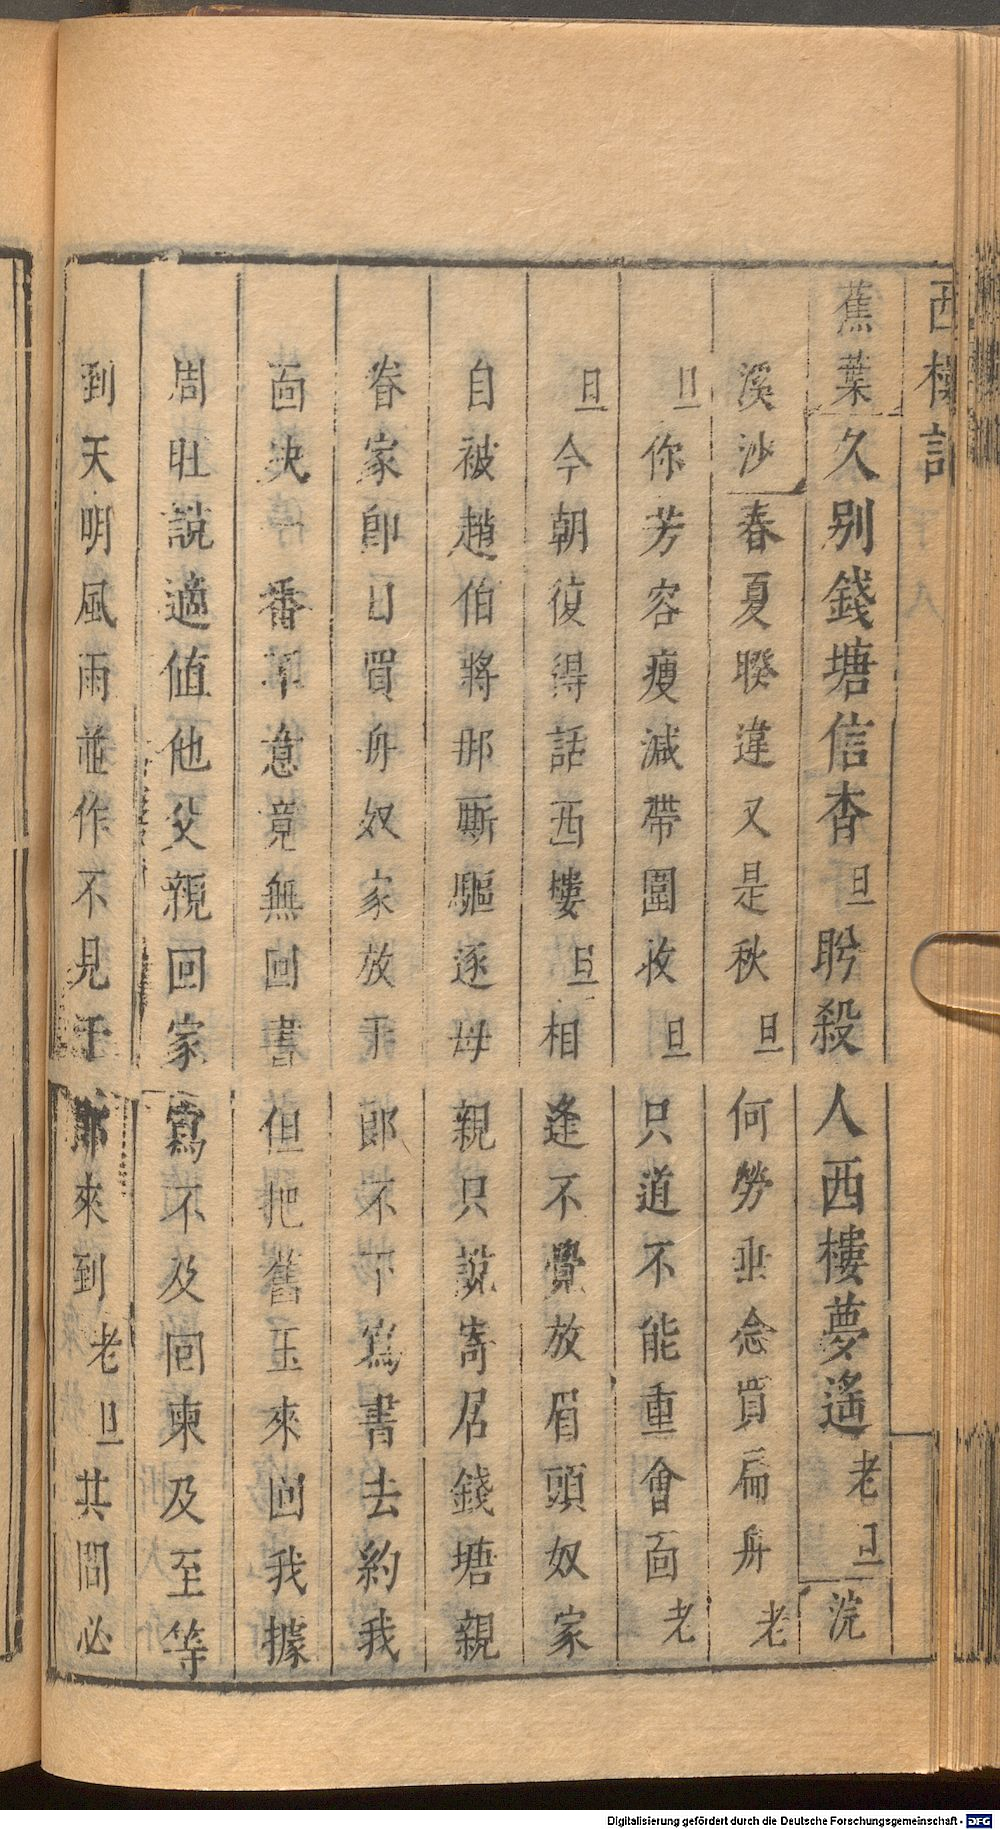 西樓記
蕉葉久別錢塘信杳旦盼殺人西樓夢遙老旦浣
溪沙春夏暌違又是秋旦何勞垂念買扁舟老
旦你芳容瘦減帶圍收旦只道不能重會面老
旦今朝復得話西樓旦相逢不覺放眉頭奴家
自被趙伯將那厮驅逐母親只說寄居錢塘親
眷家卽日買舟奴家放于郎不下寫書去約我
面决一番不意竟無回書但把舊玉來回我據
周旺說適値他父親回家寫不及回柬及至等
到天明風雨並作不見于郎來到老旦其間必
Digitalisierung gefördert durch die Deutsche Forschungsgemeinschaft - DFG